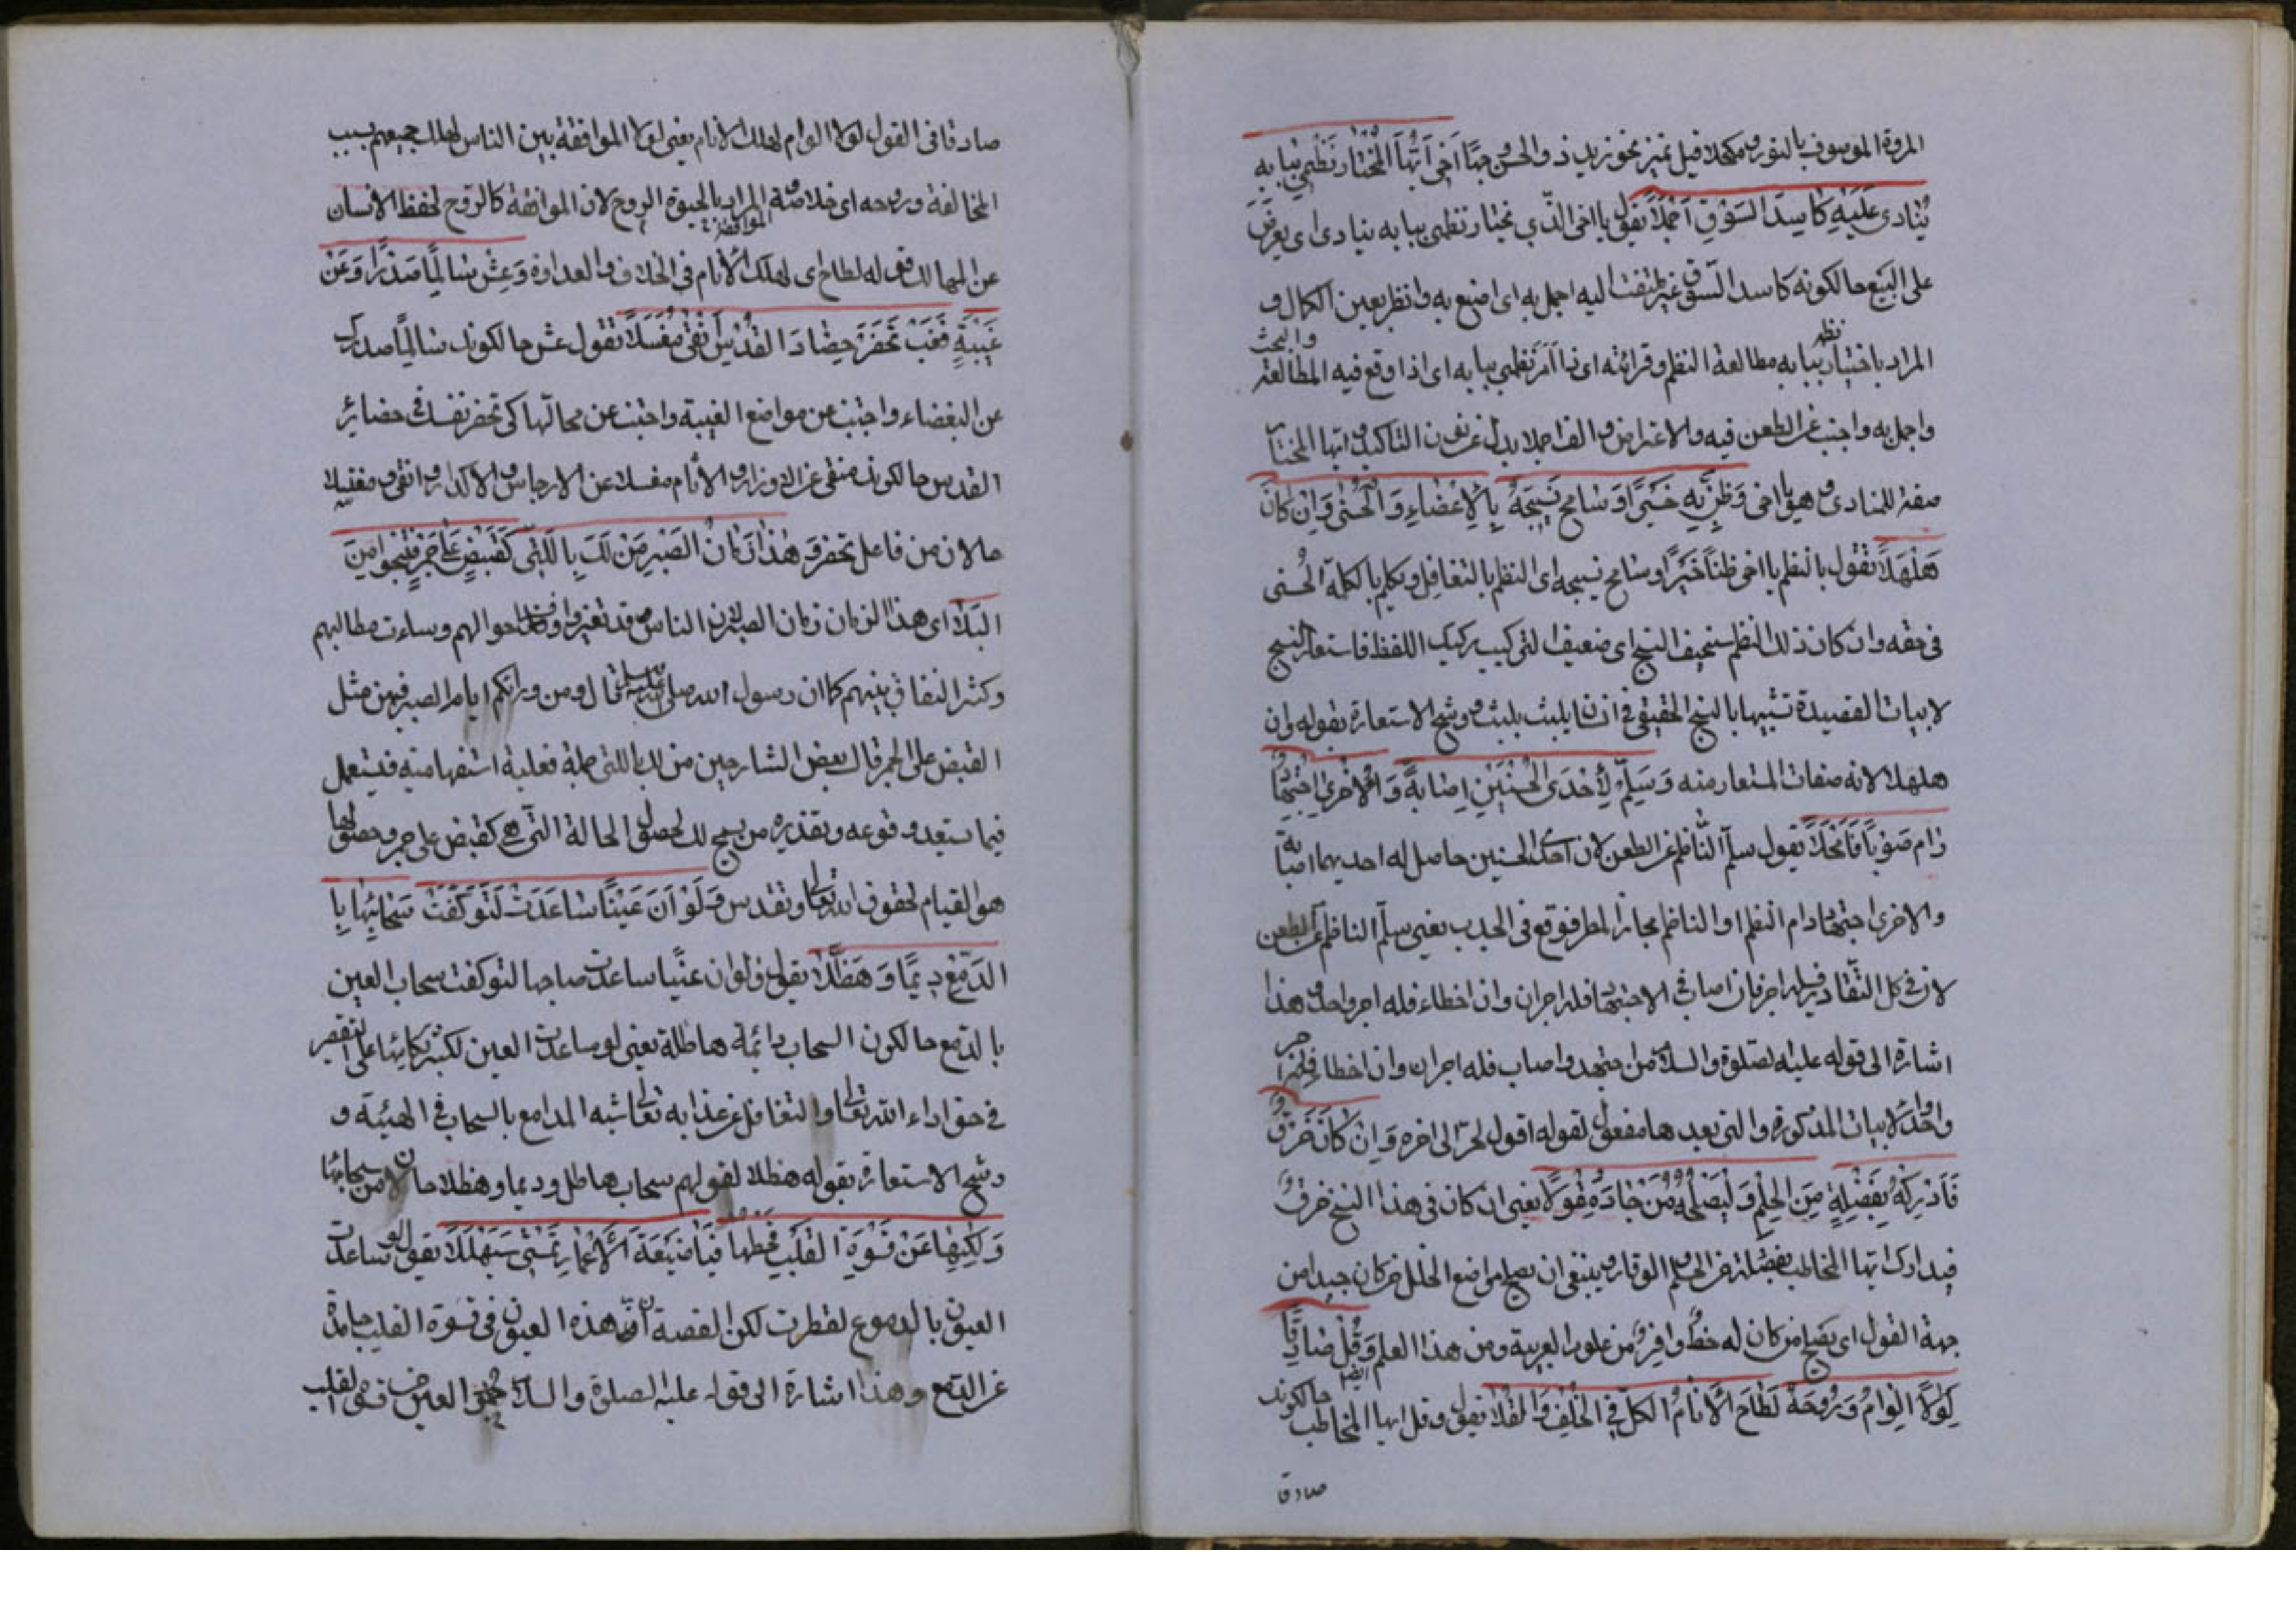 المروة الموصوف بالنور ومكحلا قيل تميز نحو زيد ذو الحسن وجها اخى ايها المجتاز نظمى ببابه
ينادى عليه كاسد السوق اجملا يقول يا اخى الذى تجتاز نظمى ببابه ينادى اى يعرض
على البيع حالكونه كاسد السوق غير ملتفت اليه اجمل به اى اصنع به وانظر بعين الكمال و
المراد باختيار نظم ببابه مطالعة النظم وقرائته اى اذا مر نظمى ببابه اى اذا وقع فيه المطالعة والبحث
واجمل به واجتنب عن الطعن فيه والاعتراض والف اجملا بدل عن نون التاكيد وايها المجتاز
صفة للمنادى وهو يا اخى وظن به خيرا وسامح نسيجه بالاغضاء والحسنى وان كان
هلهلا تقول بالنظم يا اخى ظنا خيرا وسامح نسيجه اى النظم بالتغافل وتكلم بالكلمة الحسنى
فى حقه وان كان ذلك النظم سخيف النسج اى ضعيف التركيب ركيك اللفظ فاستعار النسج
لابيات القصيدة تشبيها بالنسج الحقيقى فى ان يلبث بلبث ورشح الاستعارة بقوله وان
هلهلا لانه صفات المستعار منه وسلم لاحدى الحسنيين اصابة والاخرى اجتهاد
رام صوبا فامحلا يقول سلم الناظم عن الطعن لان احدى الحسنيين حاصل له احديهما اصابة
والاخرى اجتهاد رام النظم او الناظم مجاز المطر فوقع فى الجدب يعنى سلم الناظم عن الطعن
لان فى كل التقادير له اجر فان اصاب فى الاجتهاد فله اجران وان اخطاء فله اجر واحد وهذا
اشارة الى قوله عليه الصلوة والسلام من اجتهد واصاب فله اجران وان اخطاء فله اجر
واحد الابيات المذكورة والتى بعدها مفعول لقوله اقول لحر الى اخره وان كان خرق
فادركه بفضلة من الحلم وليصلحه من جاد مقولا يعنى ان كان فى هذا النسج خرق
فيدارك ايها المخاطب بفضلة من الحلم والوقار وينبغى ان يصلح مواضع الخلل من كان جيدا من
جهة القول اى يصلح من كان له حظ وافر من علوم العربية ومن هذا العلم ايضا وقل صادقا
لولا الوئام وروحه لطاح الانام الكل فى الخلف والقلا يقول وقل ايها المخاطب حالكونك
صادقا
صادقا فى القول لولا الوام لهلك الانام يعنى لولا الموافقة بين الناس لهلك جميعهم بسبب
المخالفة وروحه اى خلاصته المراد بالحيوة الروح لان الموافقة كالروح لحفظ الانسان
عن المهالك قوله لطاح اى لهلك الانام فى الخلاف والعداوة وعش سالما صدرا وعن
غيبة فغب تحضر حضار القدس نقى مغسلا تقول عش حالكونك سالما صدرك
عن البغضاء واجتنب عن مواضع الغيبة واجتنب عن محالها كى تحضر نفسك فى حضائر
القدس حالكونك منقى عن الاوزار والاثام مغسلا عن الارجاس والاكدار وانقى ومغسلا
حالان من فاعل تحضر وهذا زمان الصبر من لك بالتى كقبض على جمر فتنجو من
البلا اى هذا الزمان زمان الصبر لان الناس قد تغيروا وفسد احوالهم وساءت مطالبهم
وكثر النفاق بينهم كما ان رسول الله صلى الله عليه وسلم قال ومن ورائكم ايام الصبر فيهن مثل
القبض على الجمر قال بعض الشارحين من لك بالتى جملة فعلية استفهامية فتستعمل
فيما يستبعد وقوعه وتقديره من يسمح لك لحصول الحالة التى هى كقبض على جمر وحصولها
هو القيام لحقوق الله تعالى وتقدس ولو ان عينا ساعدت لتوكفت سحائبها با
الدمع ديما وهطلا يقول ولو ان عينا ساعدت صاحبها لتوكفت سحاب العين
بالدمع حالكون السحاب دائمة هاطلة يعنى لو ساعدت العين لكثر بكائها على التقصير
فى حق اداء الله تعالى والتغافل عن عذابه تعالى شبه المدامع بالسحاب فى الهيئة و
رشح الاستعارة بقوله هطلا لقولهم سحاب هاطل وديما وهطلا حالان من سحائبها
ولكنها عن قسوة القلب قحطها فيا ضيعة الاعمار تمشى سبهللا يقول لو ساعدت
العيون بالدموع لقطرت لكن القصة ان هذه العيون فى قسوة القلب جامدة
عن الدمع وهذا اشارة الى قوله عليه الصلوة والسلام جمود العين من قسوة القلب